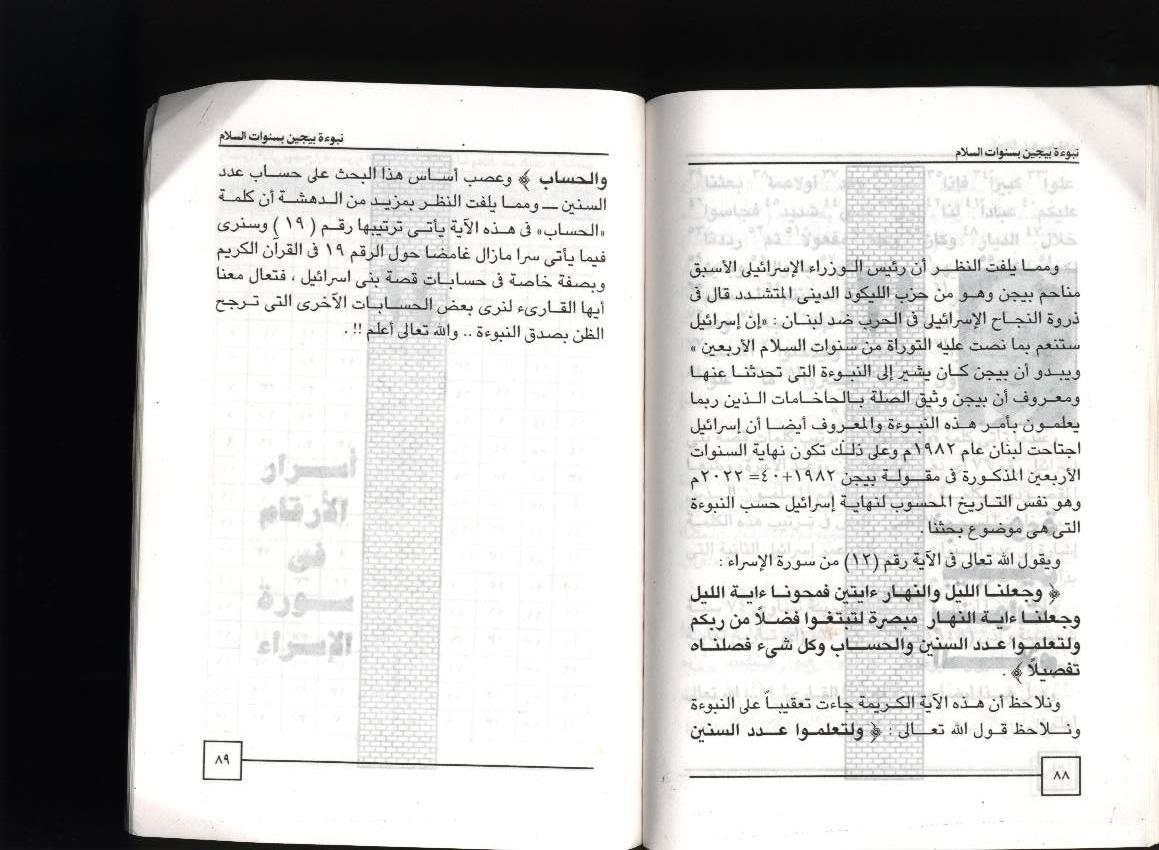 نبوءة بيجين بسنوات السلام
ومما يلفت النظر أن رئيس الوزراء الإسرائيلى الأسبق
مناحم بيجن وهو من حزب الليكود الدينى المتشدد قال فى
ذروة النجاح الإسرائيلى فى الحرب ضد لبنان : «إن إسرائيل
ستنعم بما نصت عليه التوراة من سنوات السلام الأربعين »
ويبدو أن بيجن كان يشير إلى النبوءة التى تحدثنا عنها
ومعروف أن بيجن وثيق الصلة بالحاخامات الذين ربما
يعلمون بأمر هذه النبوءة والمعروف أيضا أن إسرائيل
اجتاحت لبنان عام ١٩٨٢م وعلى ذلك تكون نهاية السنوات
الأربعين المذكورة فى مقولة بيجن ١٩٨٢+٤٠= ٢٠٢٢م
وهو نفس التاريخ المحسوب لنهاية إسرائيل حسب النبوءة
التى هى موضوع بحثنا .
ويقول الله تعالى فى الآية رقم (١٢) من سورة الإسراء :
﴿ وجعلنا الليل والنهار ءايتين فمحونا ءاية الليل
وجعلنا ءاية النهار مبصرة لتبتغوا فضلاً من ربكم
ولتعلموا عدد السنين والحساب وكل شىء فصلناه
تفصيلاً ﴾ .
ونلاحظ أن هذه الآية الكريمة جاءت تعقيباً على النبوءة
ونلاحظ قول الله تعالى : ﴿ ولتعلموا عدد السنين
٨٨
نبوءة بيجين بسنوات السلام
والحساب ﴾ وعصب أساس هذا البحث على حساب عدد
السنين ــ ومما يلفت النظر بمزيد من الدهشة أن كلمة
«الحساب» فى هذه الآية يأتى ترتيبها رقم ( ١٩ ) وسنرى
فيما يأتى سرا مازال غامضا حول الرقم ١٩ فى القرآن الكريم
وبصفة خاصة فى حسابات قصة بنى اسرائيل ، فتعال معنا
أيها القارىء لنرى بعض الحسابات الآخرى التى ترجح
الظن بصدق النبوءة .. والله تعالى أعلم !! .
أسرار
الأرقام
فى
سورة
الإسراء
٨٩